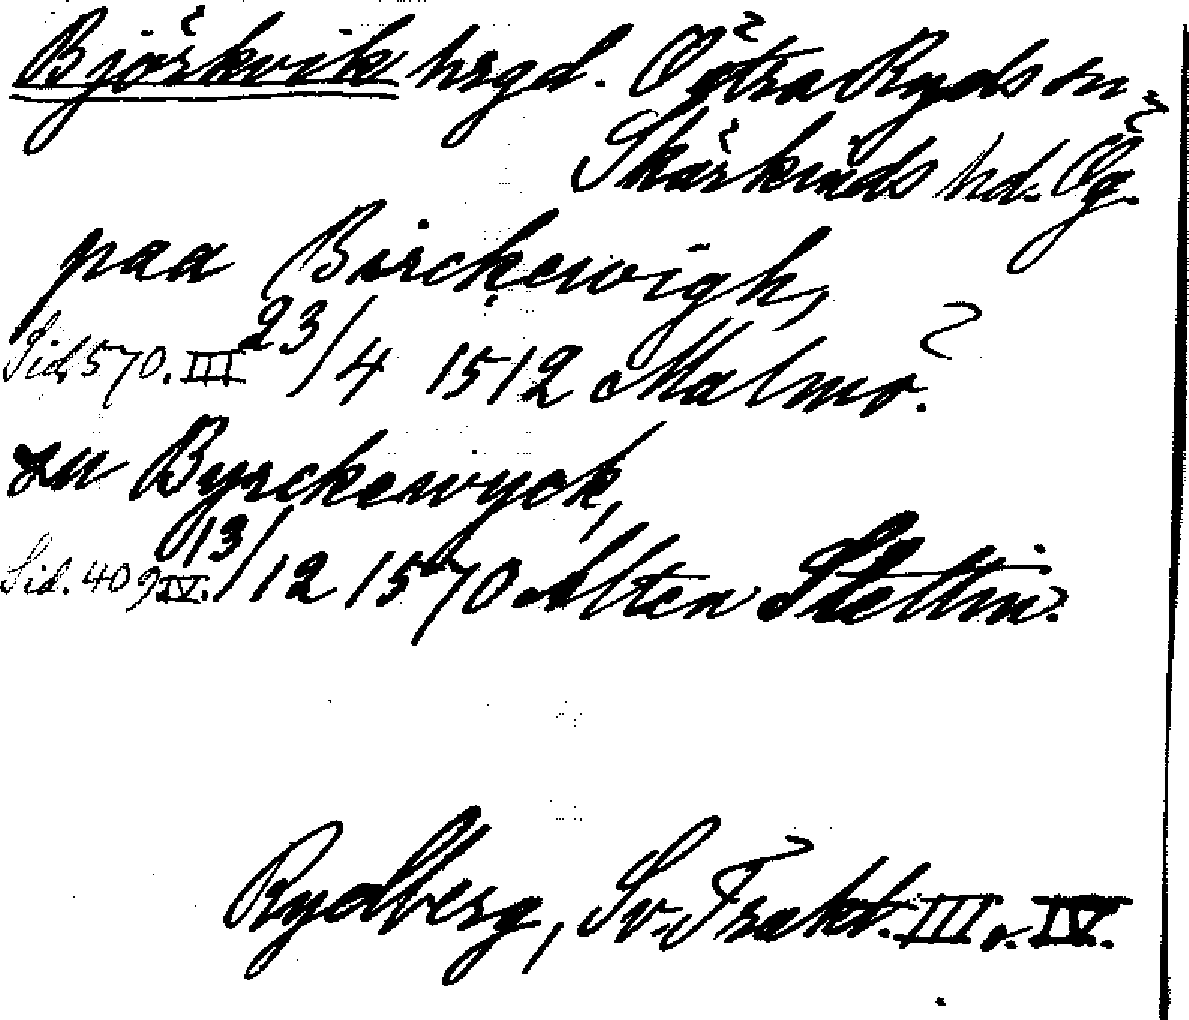 Björkvik hrgd. Östra Ryds sn,
Skärkinds hd. Ög.
paa Birckewigh,
Sid. 570. III 23/4 1512 Malmö.
zu Byrckewyck,
Sid. 409 IV. 13/12 1570 Alten Stettin.
Rydberg, Sv. Trakt. III o. IV.